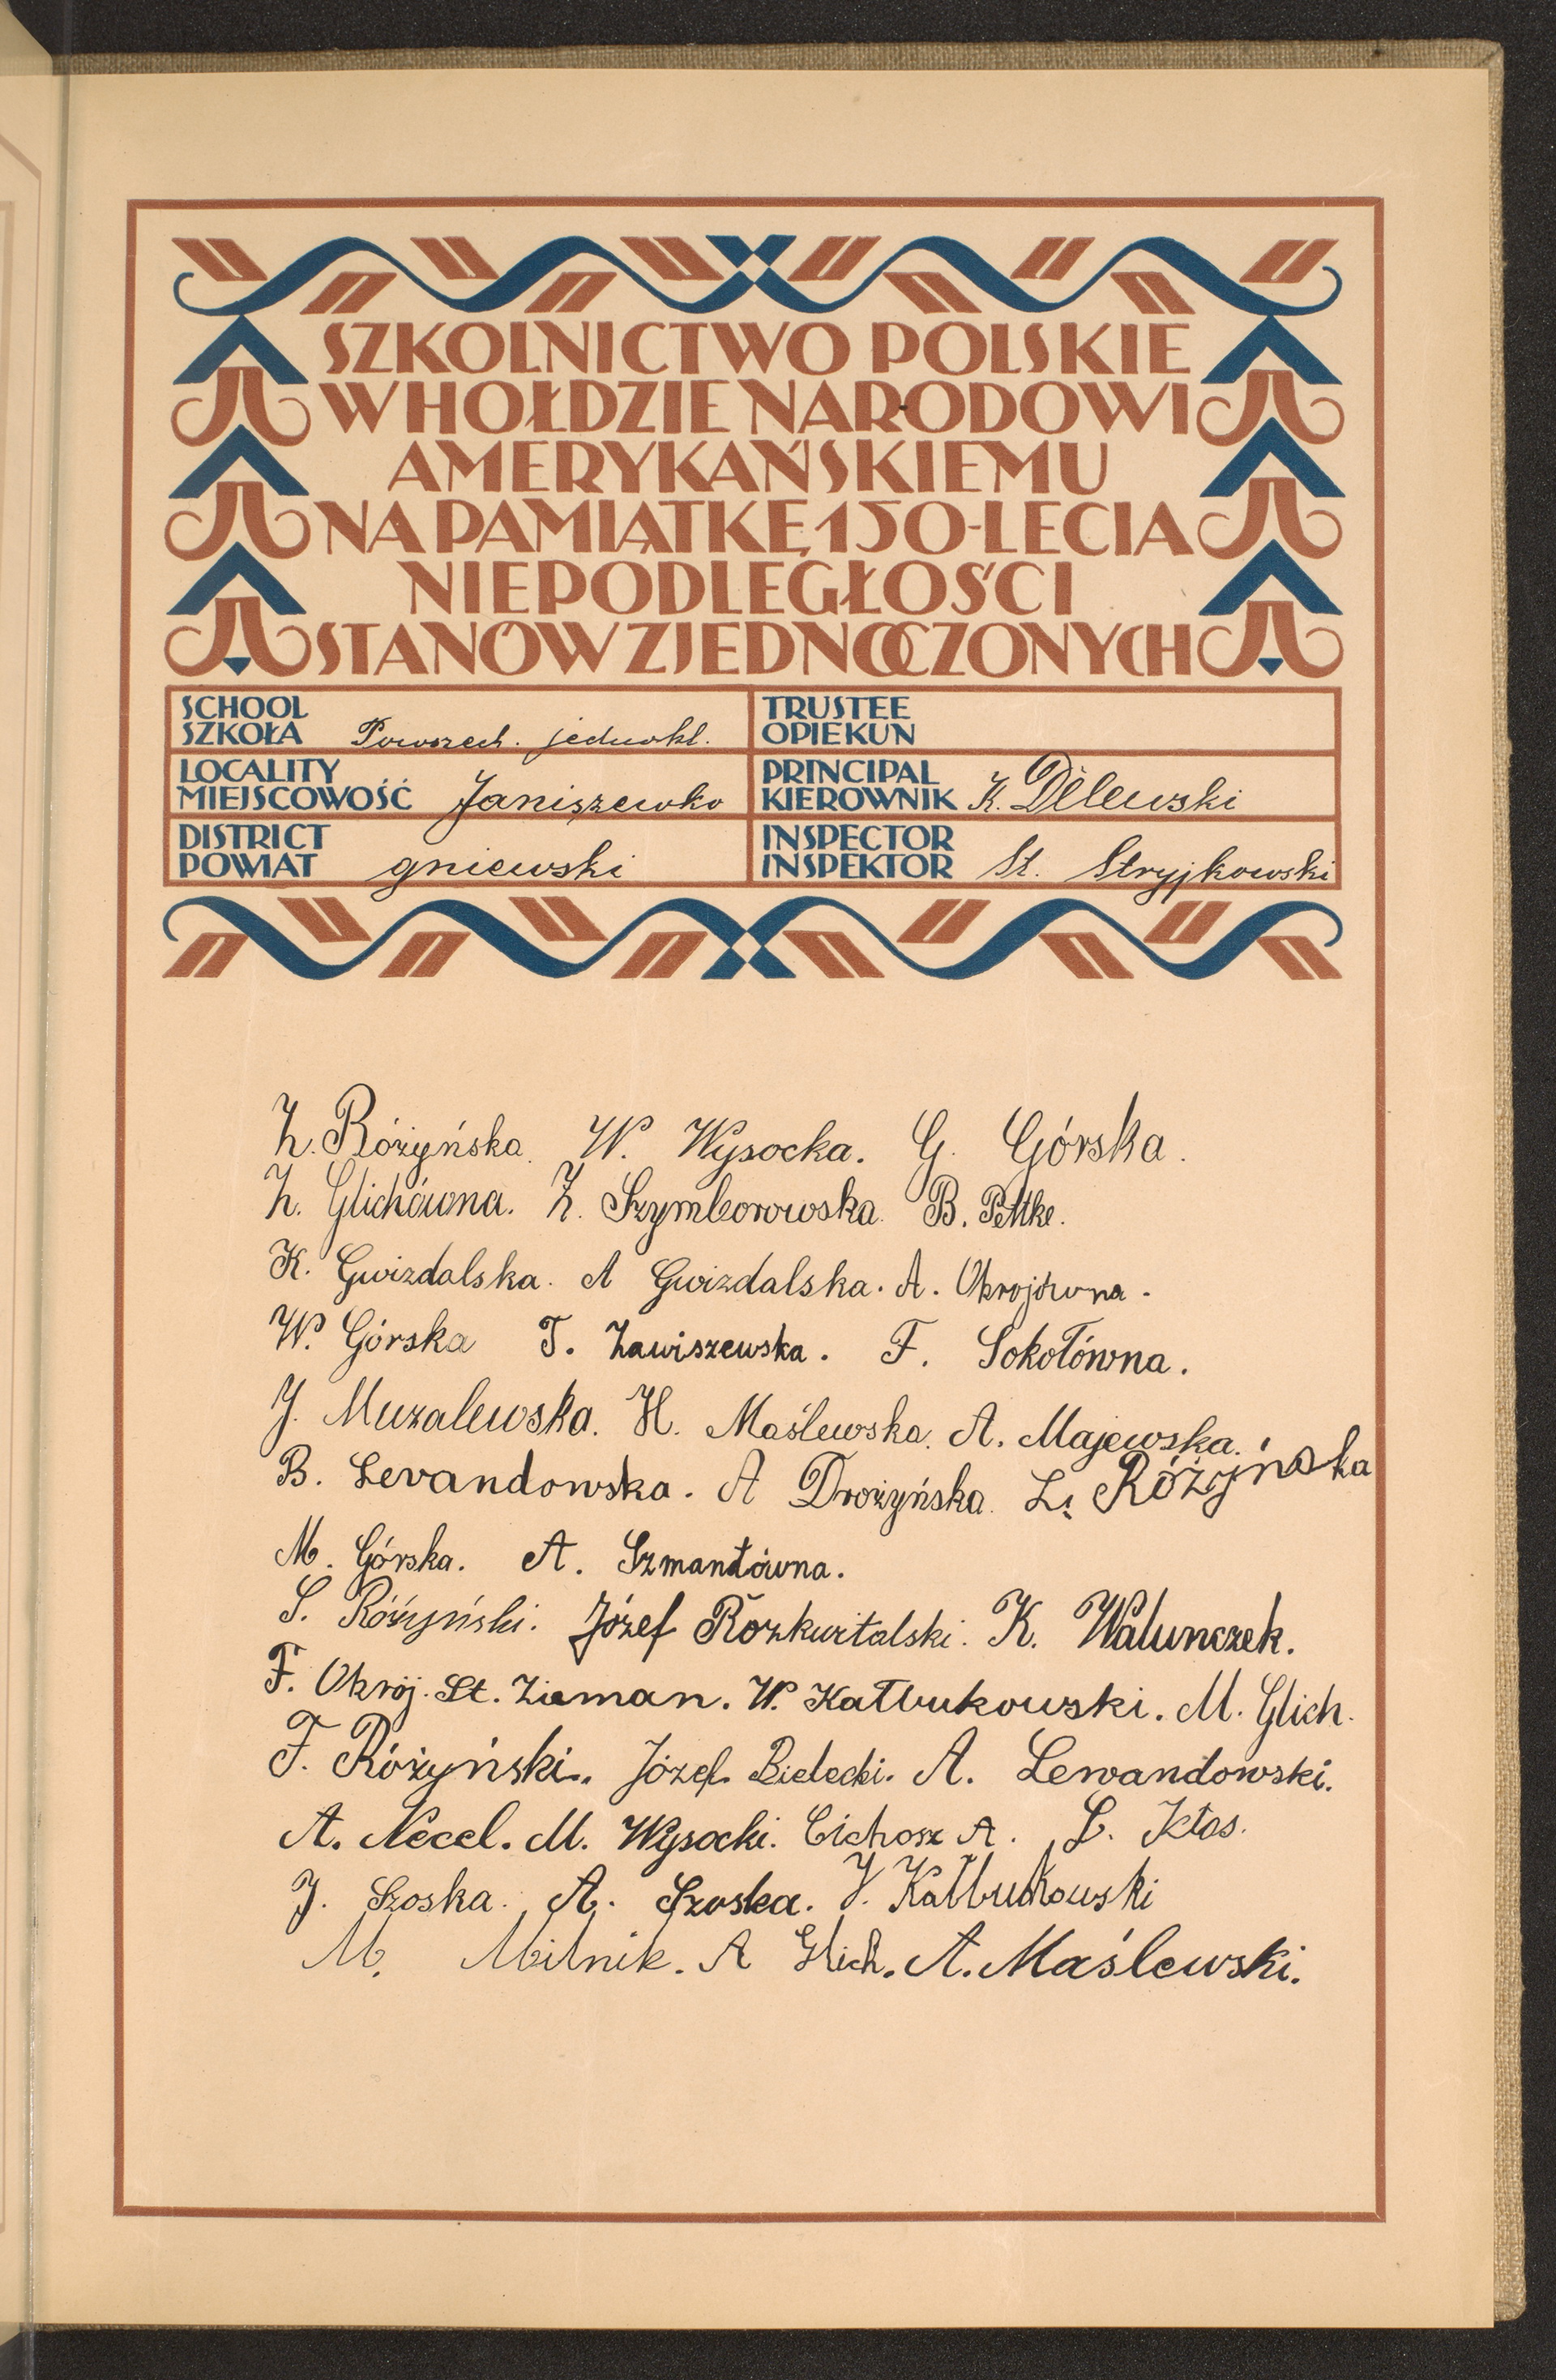 SZKOLNICTWO POLSKIE
W HOŁDZIE NARODOWI
AMERYKAŃSKIEMU
NA PAMIĄTKĘ 150-LECIA
NIEPODLEGŁOŚCI
STANÓW ZJEDNOCZONYCH
SCHOOL
SZKOŁA Powszech. jednokl.
TRUSTEE
OPIEKUN
LOCALITY
MIEJSCOWOŚĆ Janiszewko
PRINCIPAL
KIEROWNIK K. Dilewski
DISTRICT
POWIAT gniewski
INSPECTOR
INSPEKTOR St. Stryjkowski
Z. Różyńska. W. Wysocka. G. Górska.
Z. Glichówna. Z. Szymborowska. B. Pettke.
K. Gwizdalska. A Gwizdalska. A. Okrojówna.
W. Górska T. Zawiszewska. F. Sokołówna.
J. Muzalewska. H. Maślewska. A. Majewska.
B. Levandowska. A Drożyńska. L. Różyńska
M. Górska. A. Szmantówna.
S. Różyński. Józef Rozkwitalski. K. Walunczek.
F. Okrój. St. Zieman. W. Kałbukowski. M. Glich.
F. Różyński. Józef Bielecki. A. Lewandowski.
A. Necel. M. Wysocki. Cichosz A. L. Kłos.
J. Szoska. A. Szoska. J. Kałbukowski
M. Milnik. A Glich. A. Maślewski.